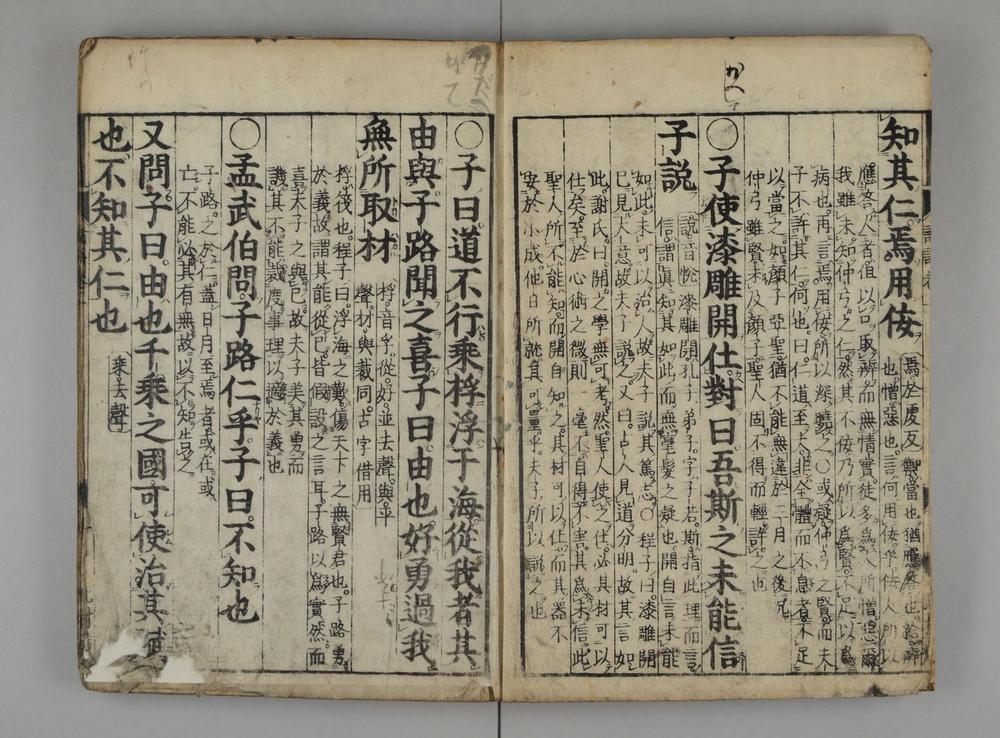 知其仁焉用佞
焉於虔反禦當也猶應答也給辨
也憎惡也言何用佞乎佞人所以
應答人者但以口取辨而無情實徒多爲人所憎惡爾
我雖未知仲弓之仁然其不佞乃所以爲賢不足以爲
病也再言焉用佞所以深曉之〇或疑仲弓之賢而未
子不許其仁何也曰仁道至大非全體而不息者不足
以當之如顔子亞聖猶不能無違於三月之後况
仲弓雖賢未及顔子聖人固不得而輕許之也
〇子使漆雕開仕對曰吾斯之未能信
子説
説音悅漆雕開孔子弟子字子若斯指此理而言
信謂眞知其如此而無毫髮之疑也開自言未能
如此未可以治人故夫子說其篤志〇程子曰漆雕開
已見大意故夫子說之又曰古人見道分明故其言如
此謝氏曰開之學無可考然聖人使之仕必其材可以
仕矣至於心術之微則一毫不自得不害其爲未信此
聖人所不能知而開自知之其材可以仕而其器不
安於小成他日所就其可量乎夫子所以說之也
〇子曰道不行乘桴浮于海從我者其
由與子路聞之喜子曰由也好勇過我
無所取材
桴音孚從好並去聲與平
聲材與裁同古字借用
桴筏也程子曰浮海之歎傷天下之無賢君也子路勇
於義故謂其能從己皆假設之言耳子路以爲實然而
喜夫子之與己故夫子美其勇而
譏其不能裁度事理以適於義也
〇孟武伯問子路仁乎子曰不知也
子路之於仁蓋日月至焉者或在或
亡不能必其有無故以不知告之
又問子曰由也千乘之國可使治其賦
也不知其仁也
乘去聲